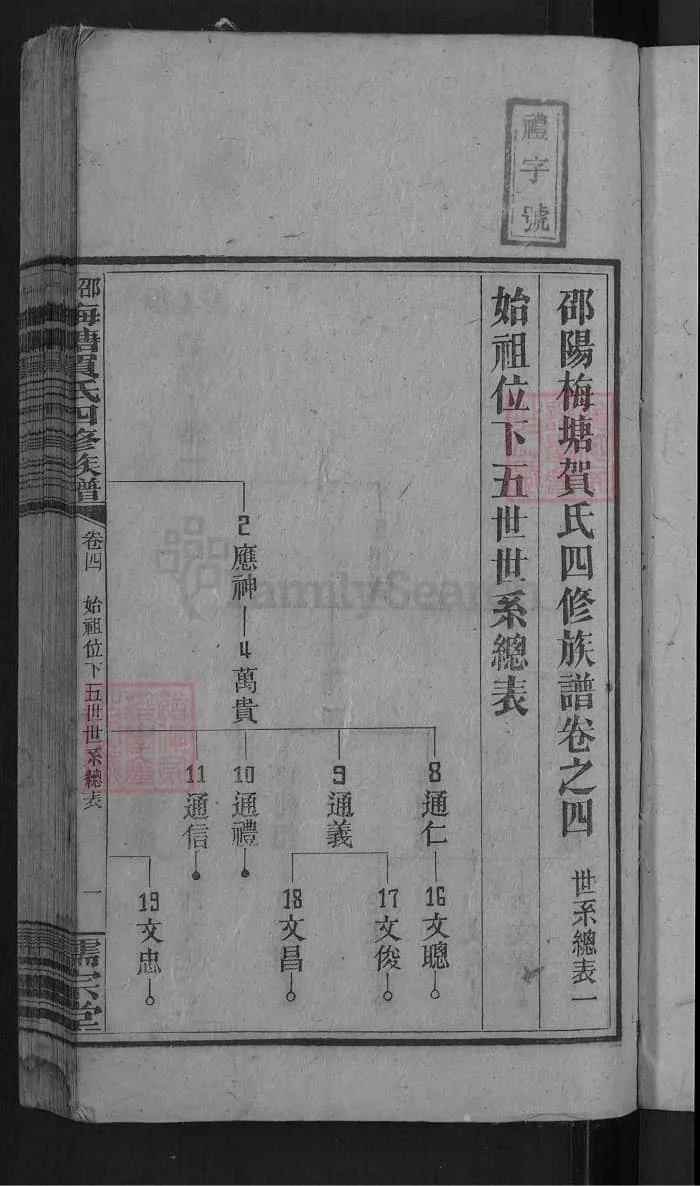 禮字號
邵陽梅塘賀氏四修族譜卷之四
世系總表一
始祖位下五世世系總表
2應神
4萬貴
8通仁
9通義
10通禮
11通信
16文聰
17文俊
18文昌
19文忠
邵梅塘賀氏四修族譜
卷四
始祖位下五世世系總表
一
儒宗堂
FamilySearch